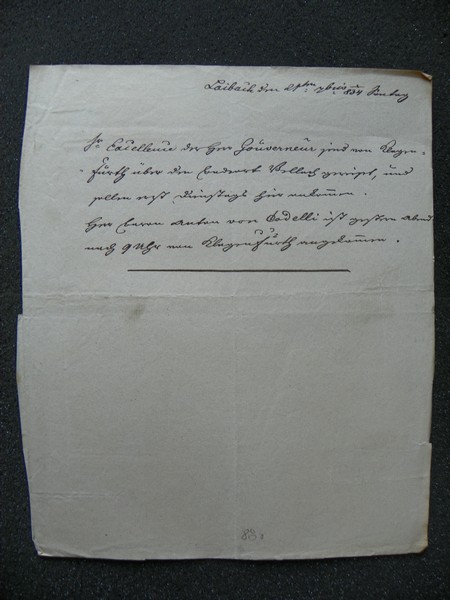 Laibach den 21ten 7bris 834 Sonntag
Sr Excellenz der Herr Gouverneur sind von Klagen-
furth über den Badeort Vellach gereiset, und
sollen erst Dienstags hier ankommen.
Herr Baron Anton von Codelli ist gestern Abend
nach 9 Uhr von Klagenfurth angekommen.